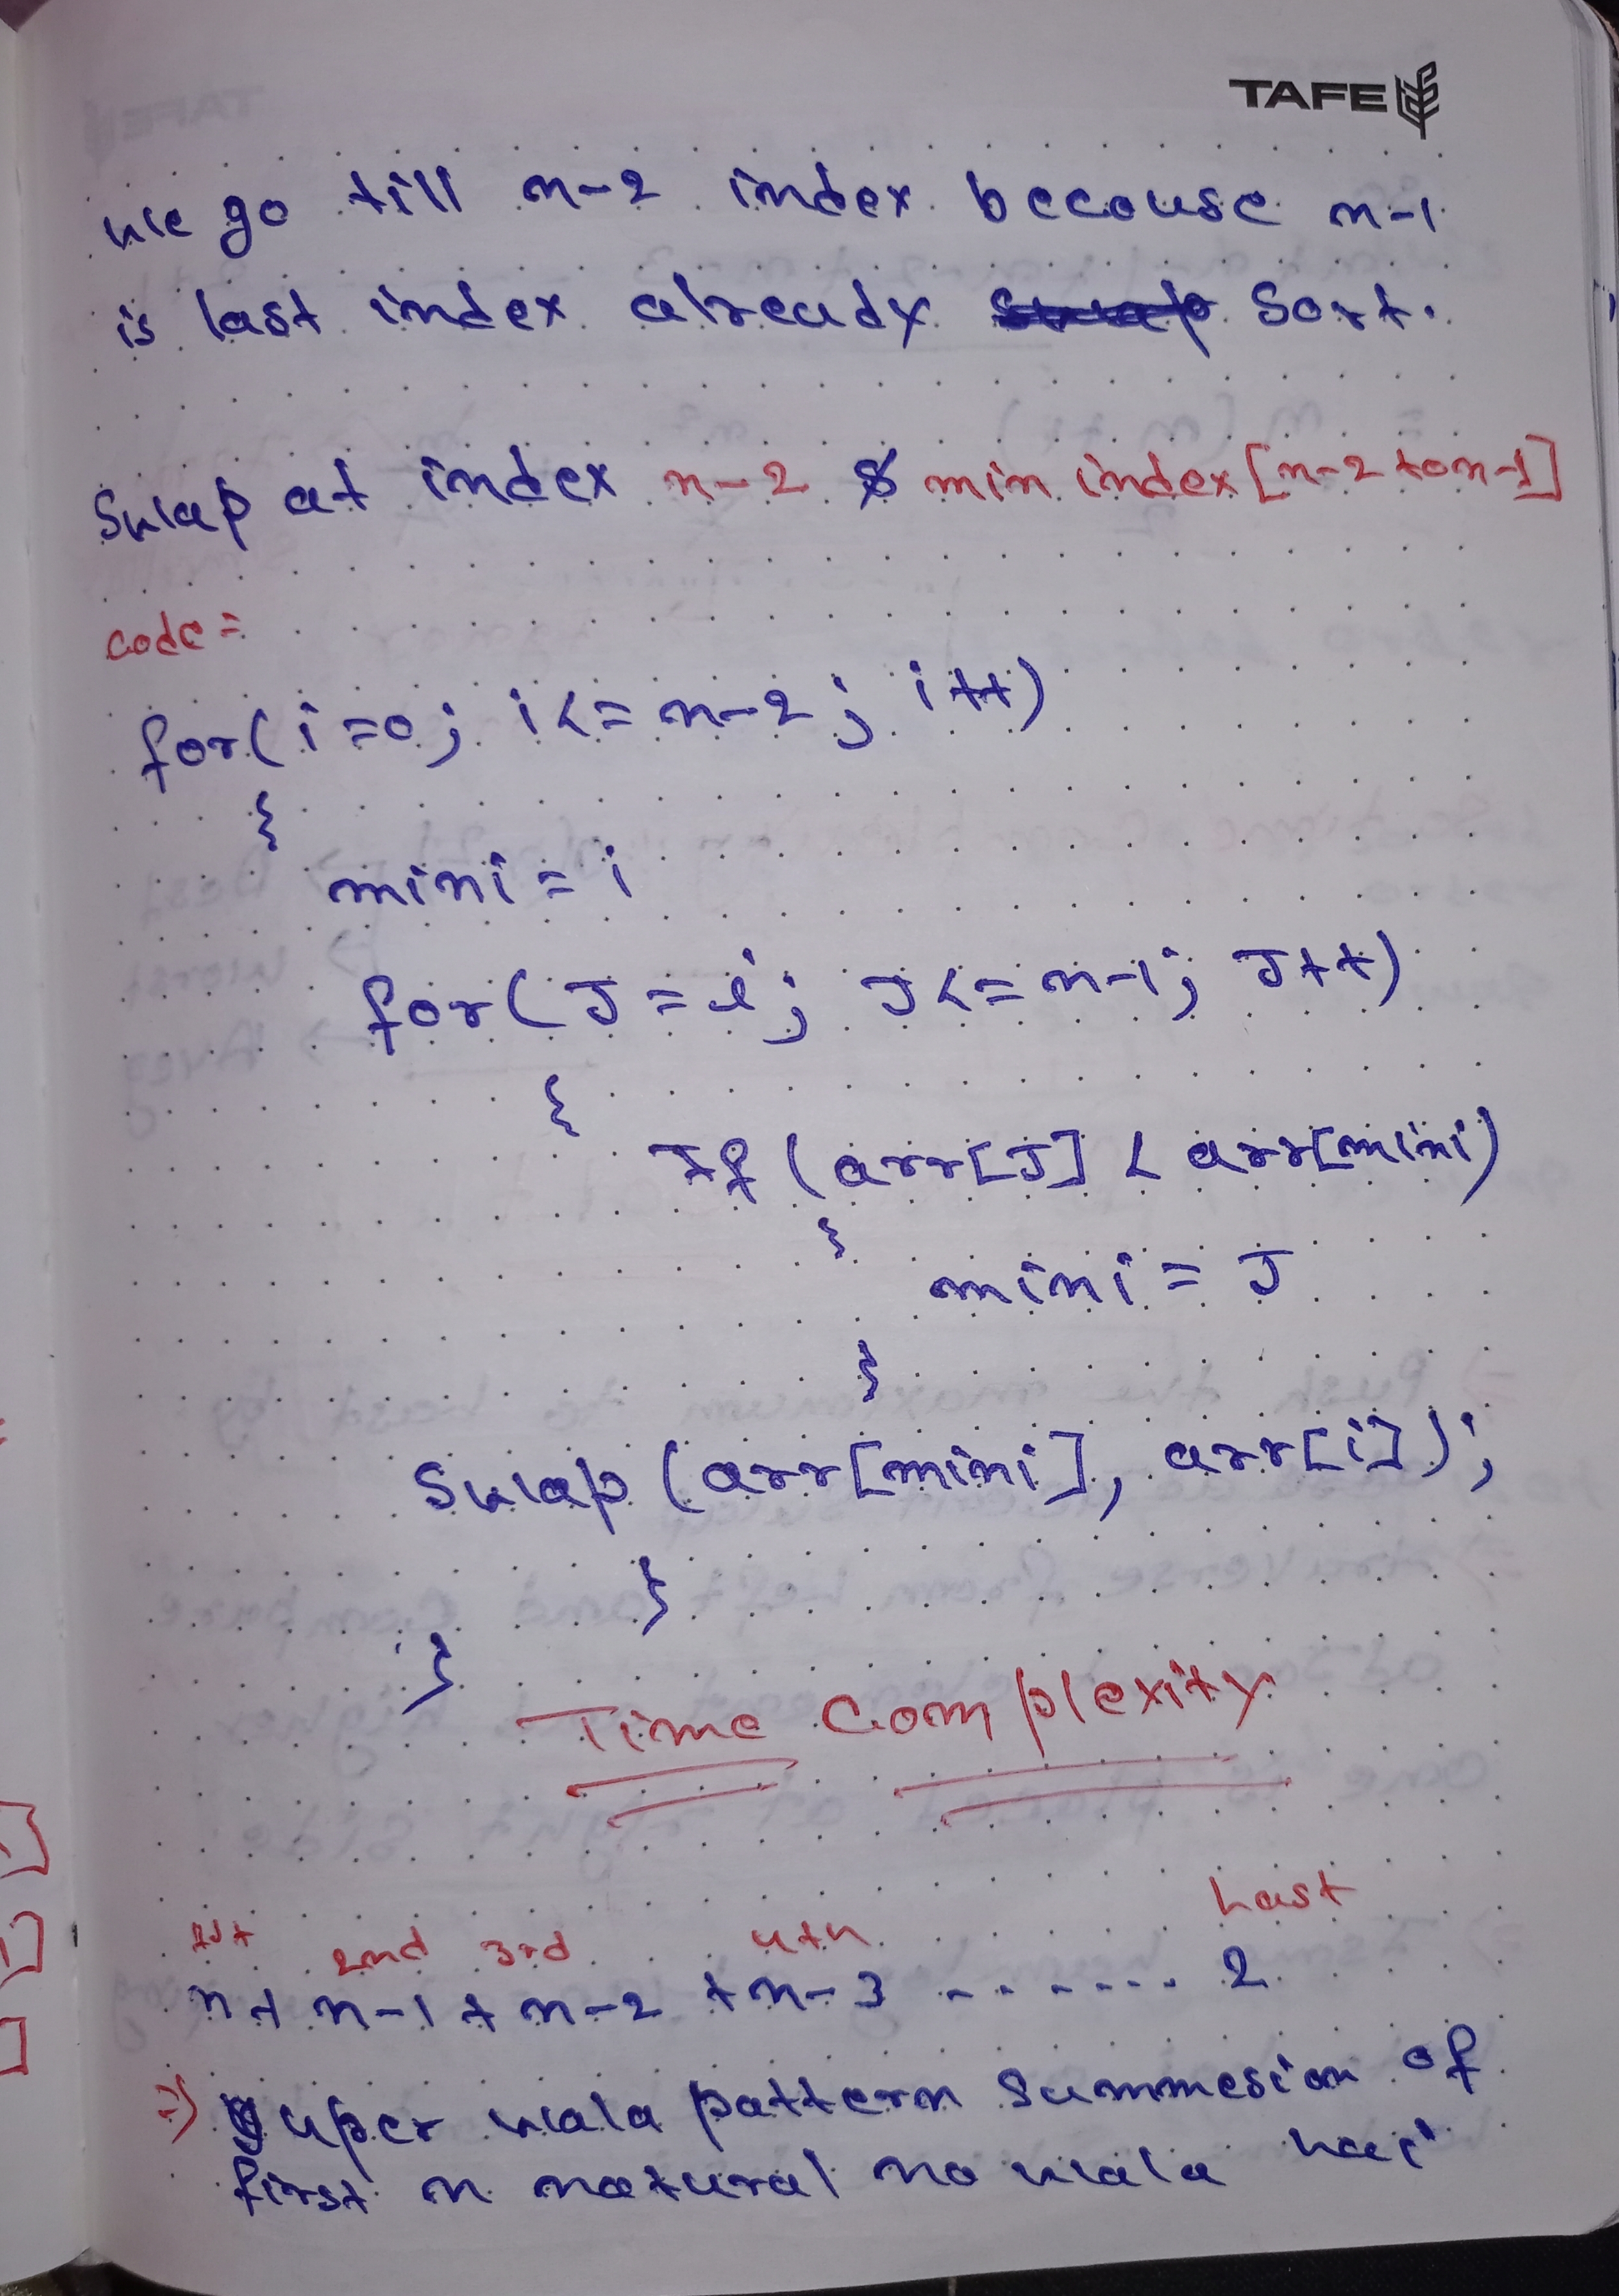 TAFE
we go till n-2 index becouse n-1
is last index already sort.
swap at index n-2 & min index [n-2 to n-1]
code =
for(i=0; i<=n-2; i++)
{
mini = i
for(J=i; J<=n-1; J++)
{
If (arr[J] < arr[mini)
{
mini = J
}
swap (arr[mini], arr[i]);
}
}
Time Complexity
1st 2nd 3rd 4th Last
n + n-1 + n-2 + n-3 ....... 2
=> uper wala pattern summesion of
first n natural no wala hai